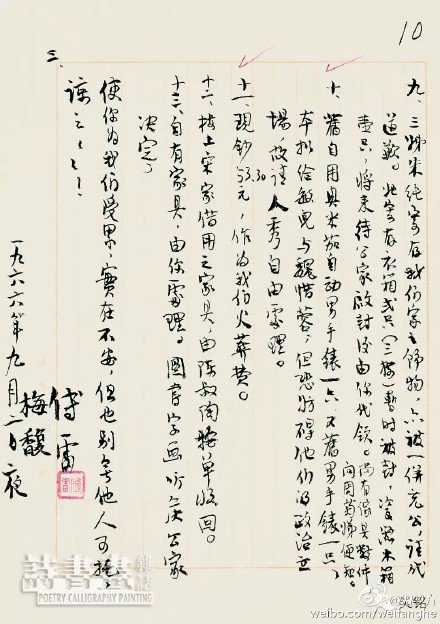 10
九、三姊朱纯寄存我们家之饰物,亦被一併充公,请代
道歉。她寄存衣箱贰只(三楼)暂时被封,瓷器木箱
壹只,将来待公家启封后由你代领。尚有傢具数件
问周菊娣便知。
十、旧自用奥米茄自动男手錶一只,又旧男手錶一只,
本拟给敏儿与魏惜蓉,但恐妨碍他们的政治立
场,故请人秀自由处理。
十一、现钞53.30元,作为我们火葬费。
十二、楼上宋家借用之家具,由陈叔陶按单收回。
十三、自有家具,由你处理。图书字画听候公家
决定。
使你为我们受累,实在不安,但也别无他人可托,
谅之谅之!
傅雷
梅馥
一九六六年九月二日夜
三.
詩書畫
POETRY CALLIGRAPHY PAINTING
weibo.com/weifanghe